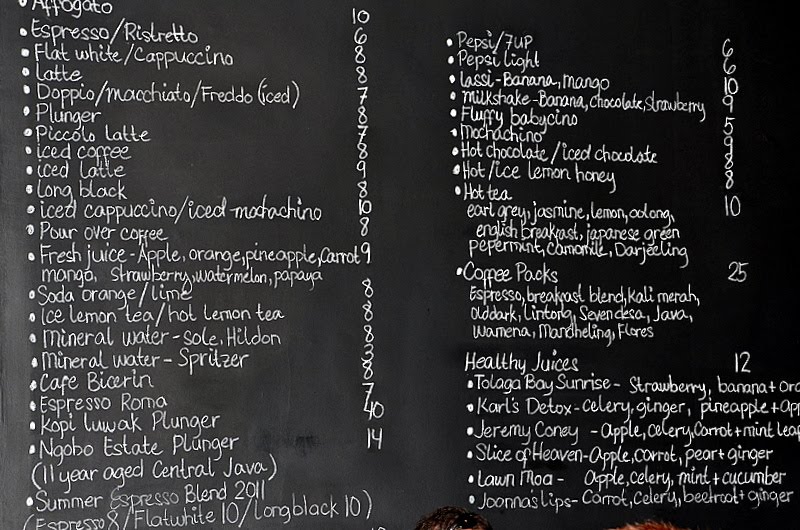 • Affogato 10
• Espresso/Ristretto 6
• Flat white/Cappuccino 8
• latte 8
• Doppio/macchiato/Freddo (iced) 7
• Plunger 8
• Piccolo latte 7
• iced coffee 8
• iced latte 9
• long black 8
• iced cappuccino/iced mochachino 10
• Pour over coffee 8
• Fresh juice - Apple, orange, pineapple, Carrot 9
mango, strawberry, watermelon, papaya
• Soda orange/lime 8
• Ice lemon tea/hot lemon tea 8
• Mineral water - sole, Hildon 8
• Mineral water - Spritzer 3
• Cafe Bicerin 8
• Espresso Roma 7
• Kopi luwak Plunger 40
• Ngobo Estate Plunger 14
(11 year aged Central Java)
• Summer Espresso Blend 2011
(Espresso 8/Flatwhite 10/longblack 10)
• Pepsi/7UP 6
• Pepsi light 6
• lassi - Banana, mango 10
• milkshake - Banana, chocolate, strawberry 9
• Fluffy babycino 5
• mochachino 9
• Hot chocolate/iced chocolate 8
• Hot/ice lemon honey 8
• Hot tea 10
earl grey, jasmine, lemon, oolong,
english breakfast, japanese green
pepermint, Camomile, Darjeeling
• Coffee Packs 25
Espresso, breakfast blend, Kali merah,
olddark, lintong, Sevendesa, Java,
wamena, Mandheling, Flores
Healthy Juices 12
• Tolaga Bay Sunrise - Strawberry, banana + ora
• Karl's Detox - celery, ginger, pineapple + app
• Jeremy Coney - Apple, celery, Carrot + mint lea
• Slice of Heaven - Apple, carrot, pear + ginger
• Lawn Moa - Apple, celery, mint + cucumber
• Joanna's lips - Carrot, celery, beetroot + ginger